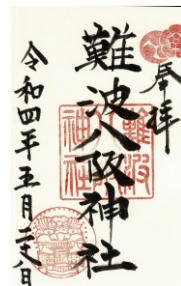 奉拝
難波八阪神社
令和四年五月二十八日